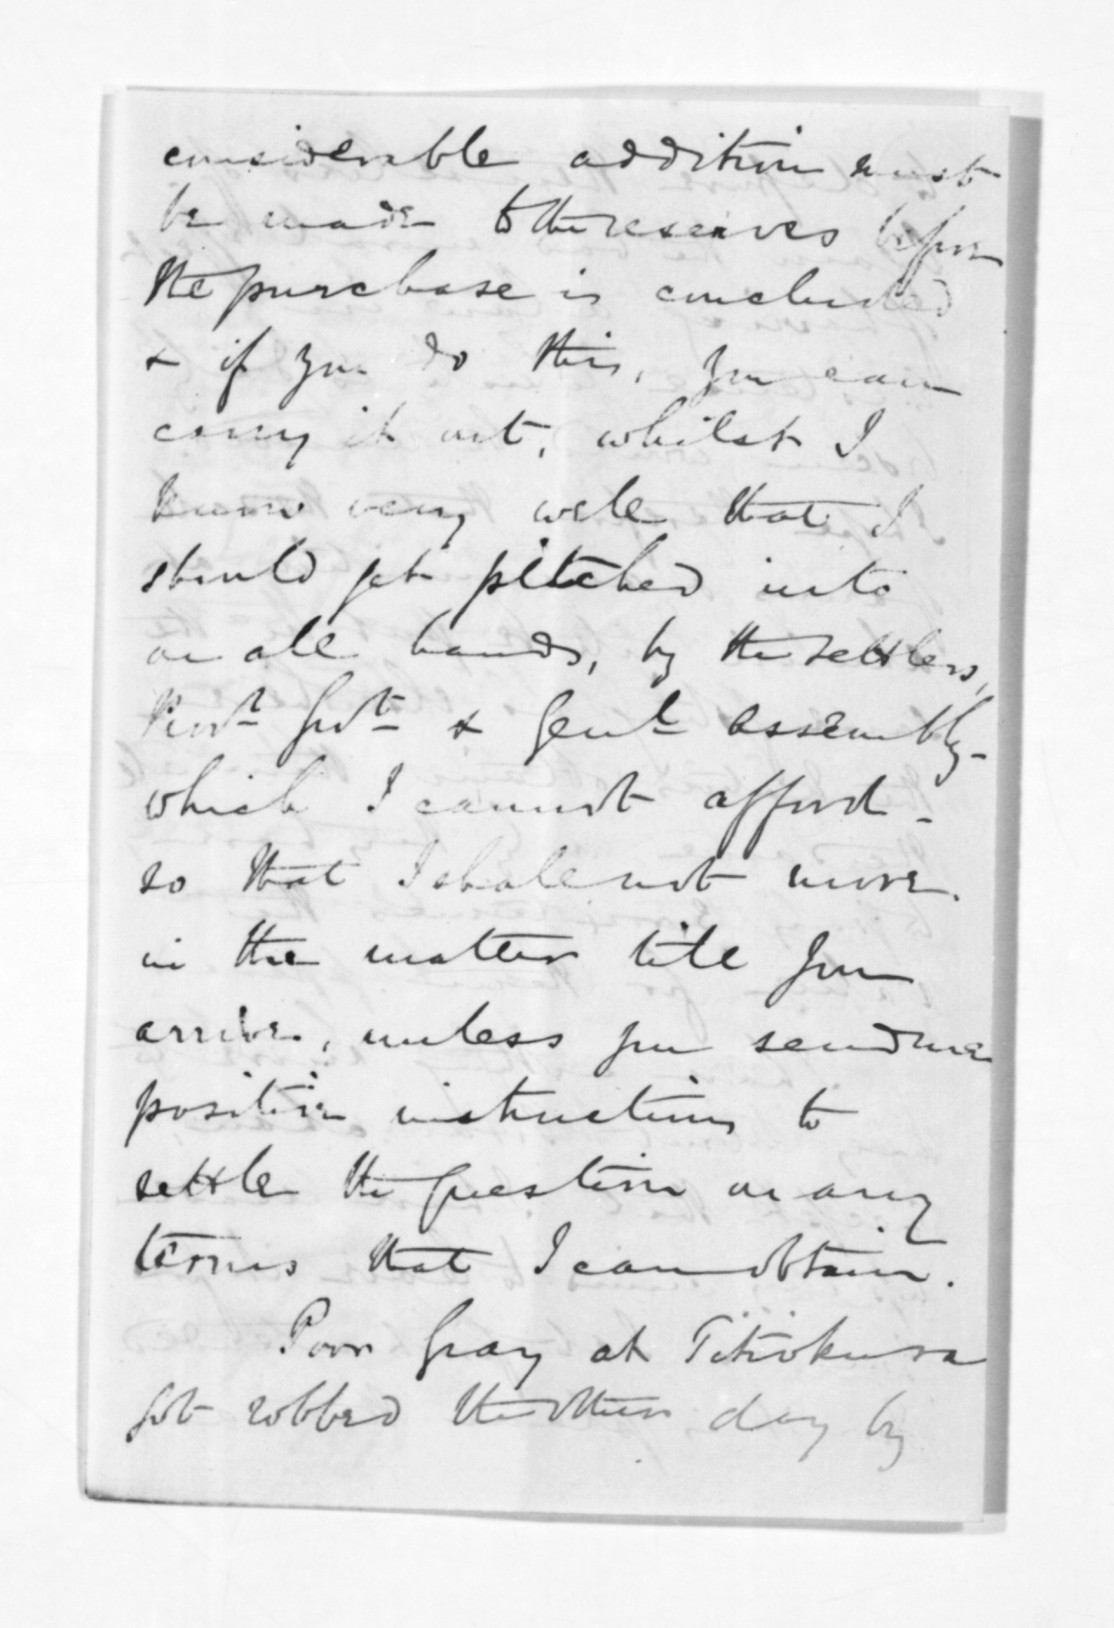 considerable addition must
be made to the reserves before
the purchase is concluded
& if you do this, you can
carry it out, whilst I
know very well that I
should get pitched into
on all hands, by the settlers,
Provl. Govt. & Genl. Assembly -
which I cannot afford -
so that I shall not move
in the matter till you
arrive, unless you send me
positive instructions to
settle the question on any
terms that I can obtain.
Poor Gray at Titiokura
got robbed the other day by